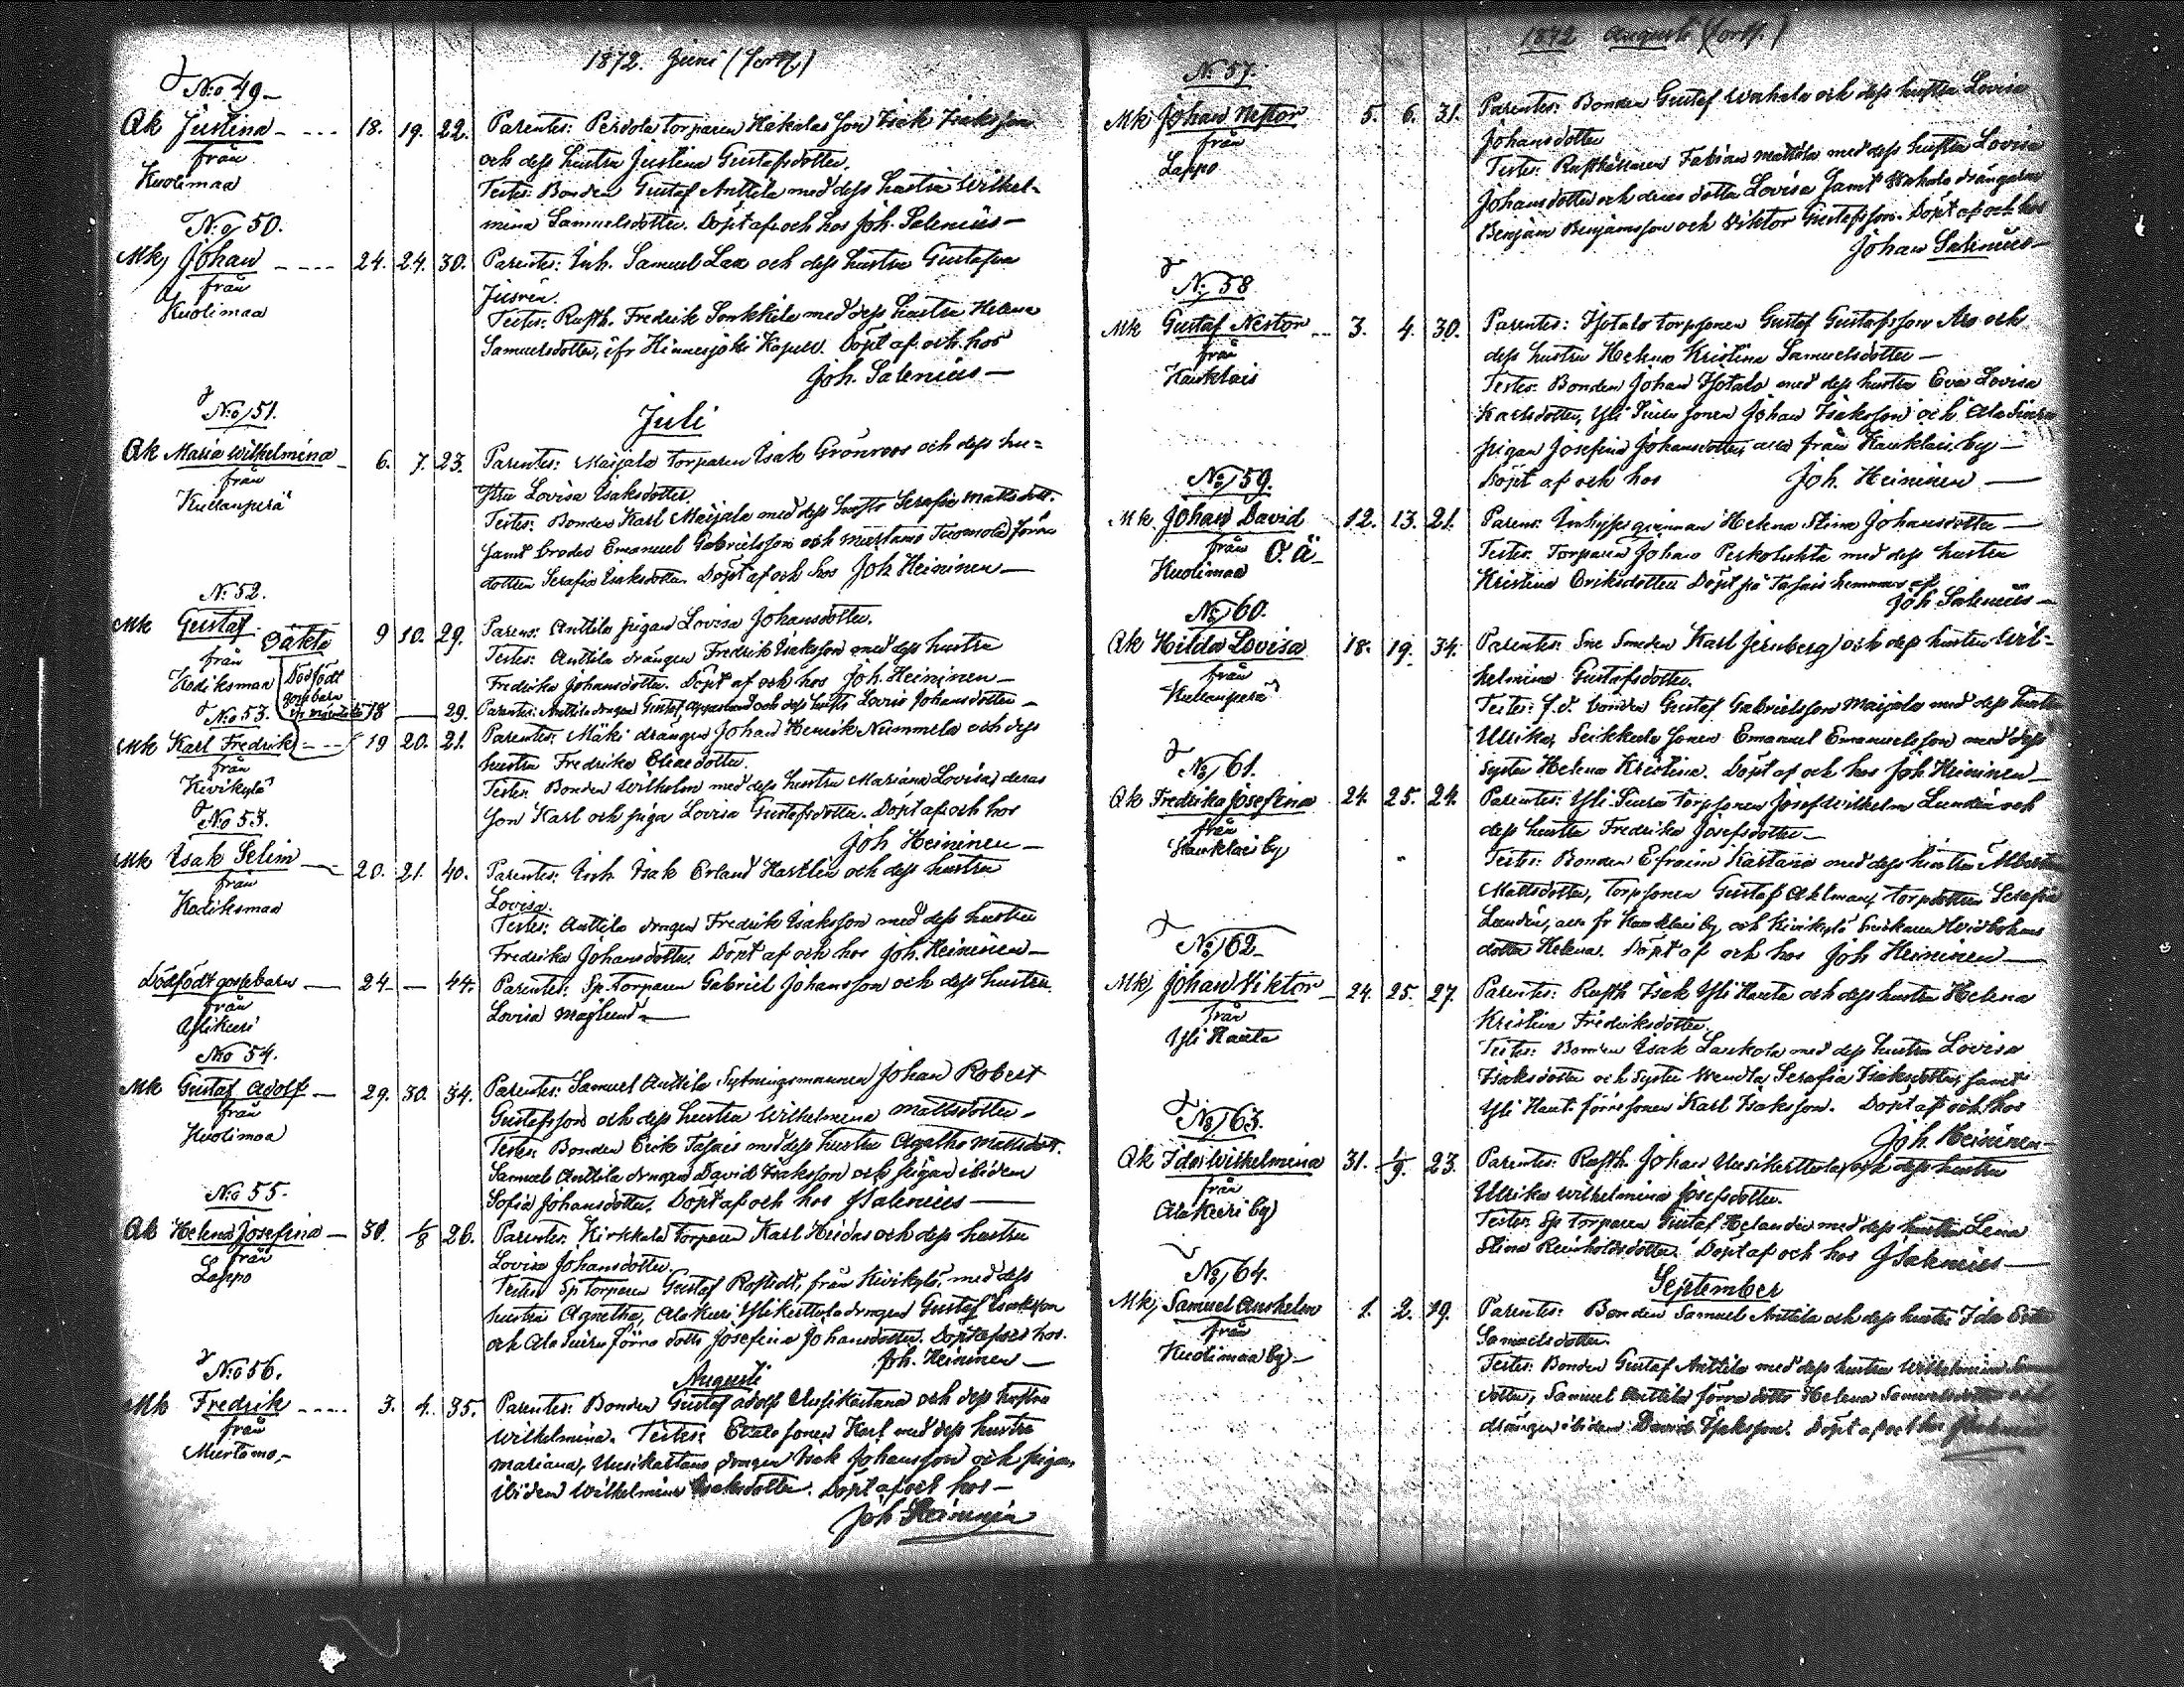 1872. Juni (Fortf.)
No 49
Qk Justina 18. 19. 22. Parentes: Perdola torparen Hakalas son Isak Isaksson
från och dess hustru Justina Gustafsdotter.
Kuolimaa Testes: Bonden Gustaf Anttila med dess hustru Wilhel-
No 50. mina Samuelsdotter. Döpt af och hos Joh. Salenius
Mk Johan 24. 24. 30. Parentes: Inh. Samuel Lax och dess hustru Gustafva
från
Kuolimaa Testes: Rusth. Fredrik Sonkkila med dess hustru Helena
Samuelsdotter, ifr Hinnerjoki Kapell. Döpt af och hos
Joh. Salenius
Juli
No 51.
Qk Maria Wilhelmina 6. 7. 23. Parentes: Maijala torparen Isak Grönroos och dess hu-
från stru Lovisa Isaksdotter.
Kullanperä Testes: Bonden Karl Maijala med dess hustr Serafia Mattsdott.
samt broder Emanuel Gabrielsson och Tuomola förra
dotter Serafia Isaksdotter. Döpt af och hos Joh Heininen
No 52.
Mk Gustaf 9 10. 29. Parens: Anttila pigan Lovisa Johansdotter.
från Oäkta Testes: Anttila drängen Fredrik Isaksson med dess hustru
Kodiksmaa Fredrika Johansdotter. Döpt af och hos Joh. Heininen
Dödfödt gossebarn
No 53. 18 — 29. Parentes: Anttila drängen Gustaf och dess hustr Lovisa Johansdotter
Mk Karl Fredrik 19 20. 21. Parentes: Mäki drängen Johan Henrik Nummela och dess
från hustru Fredrika Eliaedotter.
Kivikylä Testes: Bonden Wilhelm med dess hustru Mariana Lovisa, deras
son Karl och piga Lovisa Gustafsdotter. Döpt af och hos
Joh Heininen
No 53.
Mk Isak Selim 20. 21. 40. Parentes: Inh Isak Erland Hastlin och dess hustru
från Lovisa.
Kodiksmaa Testes: Anttila drngen Fredrik Isaksson med dess hustru
Fredrika Johansdotter. Döpt af och hos Joh. Heininen
Dödfödt gossebarn 24. — 44. Parentes: Sp. torparen Gabriel Johansson och dess hustru
från Lovisa
Ylikeri
No 54.
Mk Gustaf Adolf 29. 30. 34. Parentes: Samuel Anttila Sytningsmannen Johan Robert
från Gustafsson och dess hustru Wilhelmina Mattsdotter
Kuolimaa Testes: Bonden Erik Tassais med dess hustru Agatha Mattsdott.
Samuel Anttila drngen David Isaksson och pigan ibidem
Sofia Johansdotter. Döpt af och hos JSalenius
No 55.
Qk Helena Josefina 30. 1/8 26. Parentes: Kirkkala torparen Karl Heidas och dess hustru
från Lovisa Johansdotter.
Lappo Testes: Sp torparen Gustaf Rostedt, från Kivikylä, med dess
hustru Agatha, Alakeri Ylikerttula drngen Gustaf Isaksson
och Ala Siuru förra dottr Josefina Johansdotter. Döpt af och hos.
Joh. Heininen
Augusti
No 56.
Mk Fredrik 3. 4. 35. Parentes: Bonden Gustaf Adolf Uusikartano och dess hustru
från Wilhelmina. Testes: Etälo sonen Karl med dess hustru
Murtamo, Mariana, Uusikartano drngen Isak Johansson och pigan
ibidem Wilhelmina Isaksdotter. Döpt af och hos
Joh Heininen
1872 Augusti (Fortf.)
No 57.
Mk Johan Nestor 5. 6. 31. Parentes: Bonden Gustaf Wahala och dess hustru Lovisa
från Johansdotter
Lappo Testes: Rusthållaren Fabian Mattila med dess hustru Lovisa
Johansdotter och deras dotter Lovisa samt Wahala drängarne
Benjam Benjamsson och Viktor Gustafsson. Döpt af och hos
Johan Salenius
No 58
Mk Gustaf Nestor 3. 4. 30. Parentes: Isotalo torpsonen Gustaf Gustafsson Aro och
från dess hustru Helena Kristina Samuelsdotter
Hauklais Testes: Bonden Johan Isotalo med dess hustru Eva Lovisa
Karlsdotter, Yli Siuru sonen Johan Isaksson och Ala Siuru
pigan Josefina Johansdotter, alla från Hauklais by
Döpt af och hos Joh. Heininen
No 59.
Mk Johan David 12. 13. 21. Parens: Inhyseqvinnan Helena Stina Johansdotter
från O.ä. Testes: Torparen Johan med dess hustru
Kuolimaa Kristina Eriksdotter Döpt på Tassais hemman af
Joh Salenius
No 60.
Qk Hilda Lovisa 18. 19. 34. Parentes: Sme Smeden Karl Jernberg och dess hustru Wil-
från helmina Gustafsdotter.
Kullanperä Testes: f.d. bonden Gustaf Gabrielsson Maijala med dess hustru
Ullrika, Seikkula sonen Emanuel Emanuelsson med dess
syster Helena Kristina. Döpt af och hos Joh Heininen
No 61.
Qk Fredrika Josefina 24. 25. 24. Parentes: Yli Siuru torpsonen Josef Wilhelm Lundén och
från dess hustru Fredrika Josefsdotter
Hauklais by Testes: Bonden Efraim Kartano med dess hustru Albertina
Mattsdotter, torpsonen Gustaf Ahlman, torpdottern Serafia
Lundén, alla fr Hauklais by och Kivikylä
dotter Helena. Döpt af och hos Joh Heininen
No 62
Mk Johan Viktor 24. 25. 27. Parentes: Rusth Isak Yli Hauta och dess hustru Helena
från Kristina Fredriksdotter.
Yli Hauta Testes: Bonden Isak Laukola med dess hustru Lovisa
Isaksdotter och syster Wendla Serafia Isaksdotter, samt
Yli Haut. förresonen Karl Isaksson. Döpt af och hos
Joh. Heininen
No 63.
Qk Ida Wilhelmina 31. 1/9. 23. Parentes: Rusth. Johan Uusikerttula och dess hustru
från Ullrika Wilhelmina Josefsdotter.
Alakeri by Testes: Sp torparen Gustaf Helander med dess hustru Lena
Stina Reinholdsdotter. Döpt af och hos JSalenius
September
No 64.
Mk Samuel Anshelm 1. 2. 19. Parentes: Bonden Samuel Anttila och dess hustru Ida
från Samuelsdotter.
Kuolimaa by Testes: Bonden Gustaf Anttila med dess hustru Wilhelmina
dotter, Samuel Anttila förra dottr Helena Samuelsdotter och
drängen ibidem David Isaksson. Döpt af och hos JSalenius